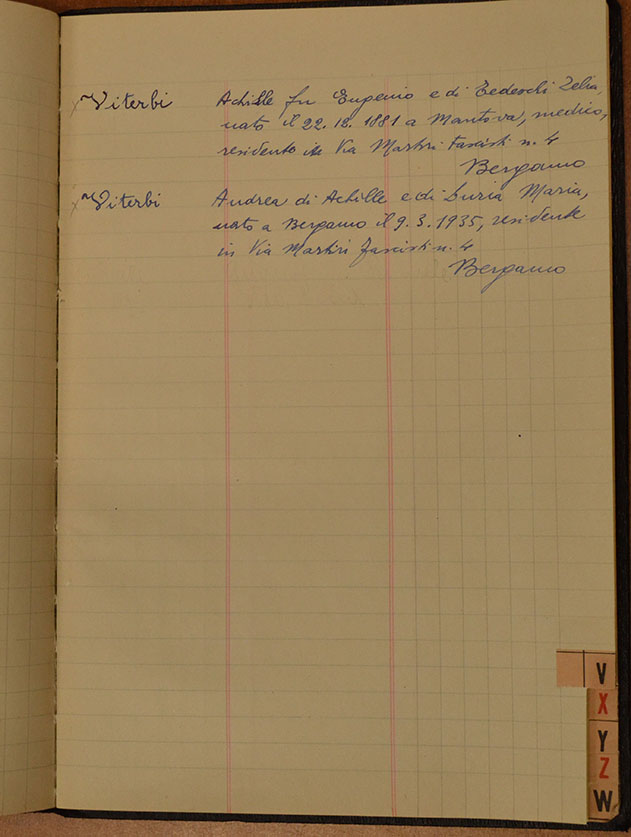 Viterbi Achille fu Eugenio e di Tedeschi Zelia,
nato il 22.12.1881 a Mantova, medico,
residente in Via Martiri Fascisti n. 4
Bergamo
Viterbi Andrea di Achille e di Luria Maria,
nato a Bergamo il 9.3.1935, residente
in Via Martiri fascisti n. 4
Bergamo
V
X
Y
Z
W